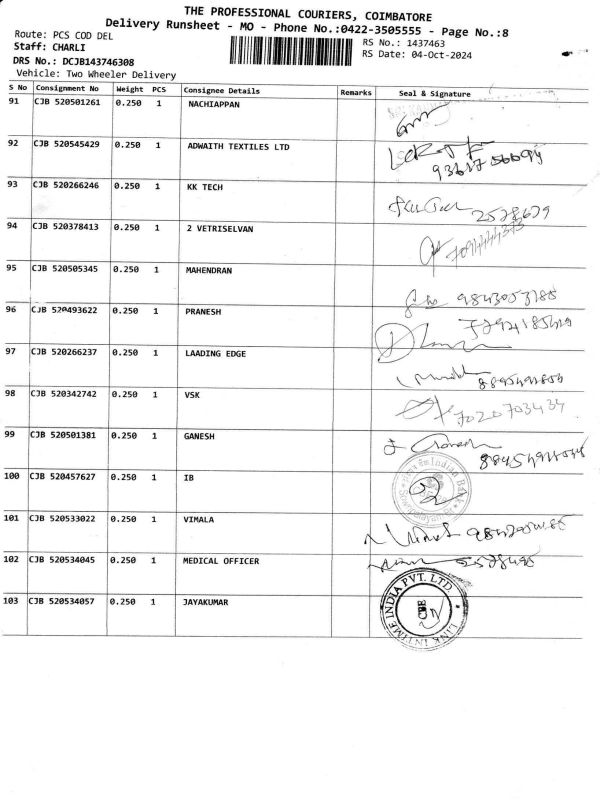 THE PROFESSIONAL COURIERS, COIMBATORE
Delivery Runsheet - MO - Phone No.:0422-3505555 - Page No.:8
Route: PCS COD DEL
RS No.: 1437463
Staff: CHARLI
RS Date: 04-Oct-2024
DRS No.: DCJB143746308
Vehicle: Two Wheeler Delivery
S No Consignment No Weight PCS Consignee Details Remarks Seal & Signature
91 CJB 520501261 0.250 1 NACHIAPPAN
92 CJB 520545429 0.250 1 ADWAITH TEXTILES LTD
93 CJB 520266246 0.250 1 KK TECH
2578679
94 CJB 520378413 0.250 1 2 VETRISELVAN
95 CJB 520505345 0.250 1 MAHENDRAN
9843053185
96 CJB 520493622 0.250 1 PRANESH
97 CJB 520266237 0.250 1 LAADING EDGE
98 CJB 520342742 0.250 1 VSK
7020703434
99 CJB 520501381 0.250 1 GANESH
Ganesh
100 CJB 520457627 0.250 1 IB
Indian Ba
101 CJB 520533022 0.250 1 VIMALA
102 CJB 520534045 0.250 1 MEDICAL OFFICER
2578495
103 CJB 520534057 0.250 1 JAYAKUMAR
LINK INTIME INDIA PVT. LTD
CBE